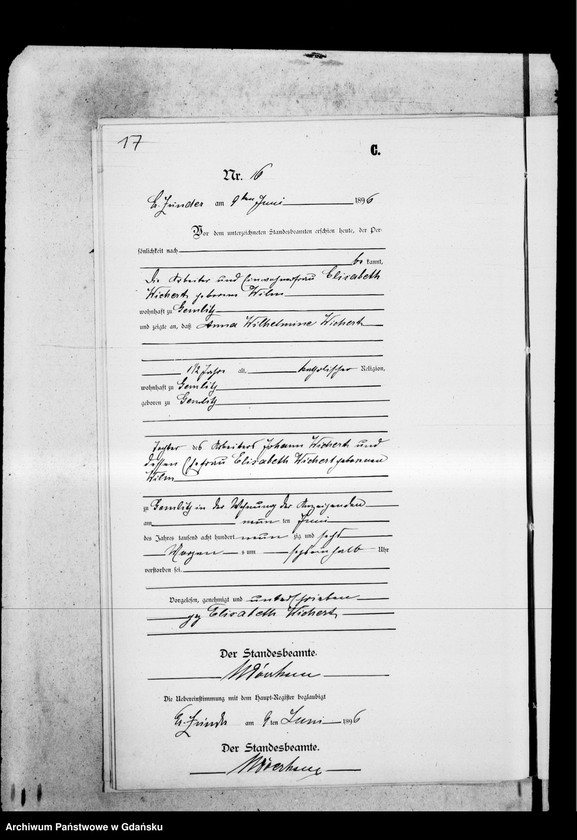 17
C.
Nr. 16
Gr. Zünder am 9ten Juni 1896
Vor dem unterzeichneten Standesbeamten erschien heute, der Per-
sönlichkeit nach
be kannt,
die Arbeiter und Einwohnerfrau Elisabeth
Wichert geborene Wilm
wohnhaft zu Gemlitz
und zeigte an, daß Anna Wilhelmine Wichert
1/2 Jahr alt, katholischer Religion,
wohnhaft zu Gemlitz
geboren zu Gemlitz
Tochter des Arbeiters Johann Wichert und
dessen Ehefrau Elisabeth Wichert geborenen
Wilm
zu Gemlitz in der Wohnung der Anzeigenden
am neun ten Juni
des Jahres tausend acht hundert neun zig und sechs
Morgens um halb Uhr
verstorben sei.
Vorgelesen, genehmigt und unterschrieben
gez Elisabeth Wichert
Der Standesbeamte.
Die Uebereinstimmung mit dem Haupt-Register beglaubigt
Gr. Zünder am 9 ten Juni 1896
Der Standesbeamte.
Archiwum Państwowe w Gdańsku